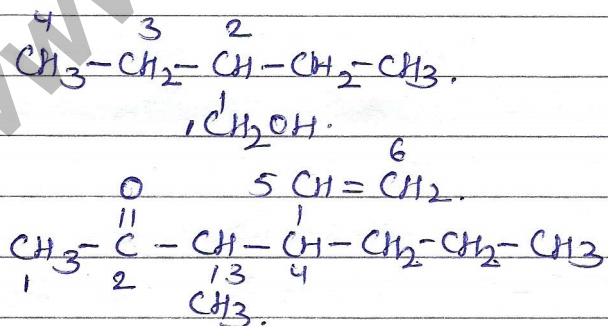 4 3 2
CH3-CH2-CH-CH2-CH3.
1CH2OH.
6
O 5 CH=CH2.
CH3-C-CH-CH-CH2-CH2-CH3
1 2 3 4
CH3.